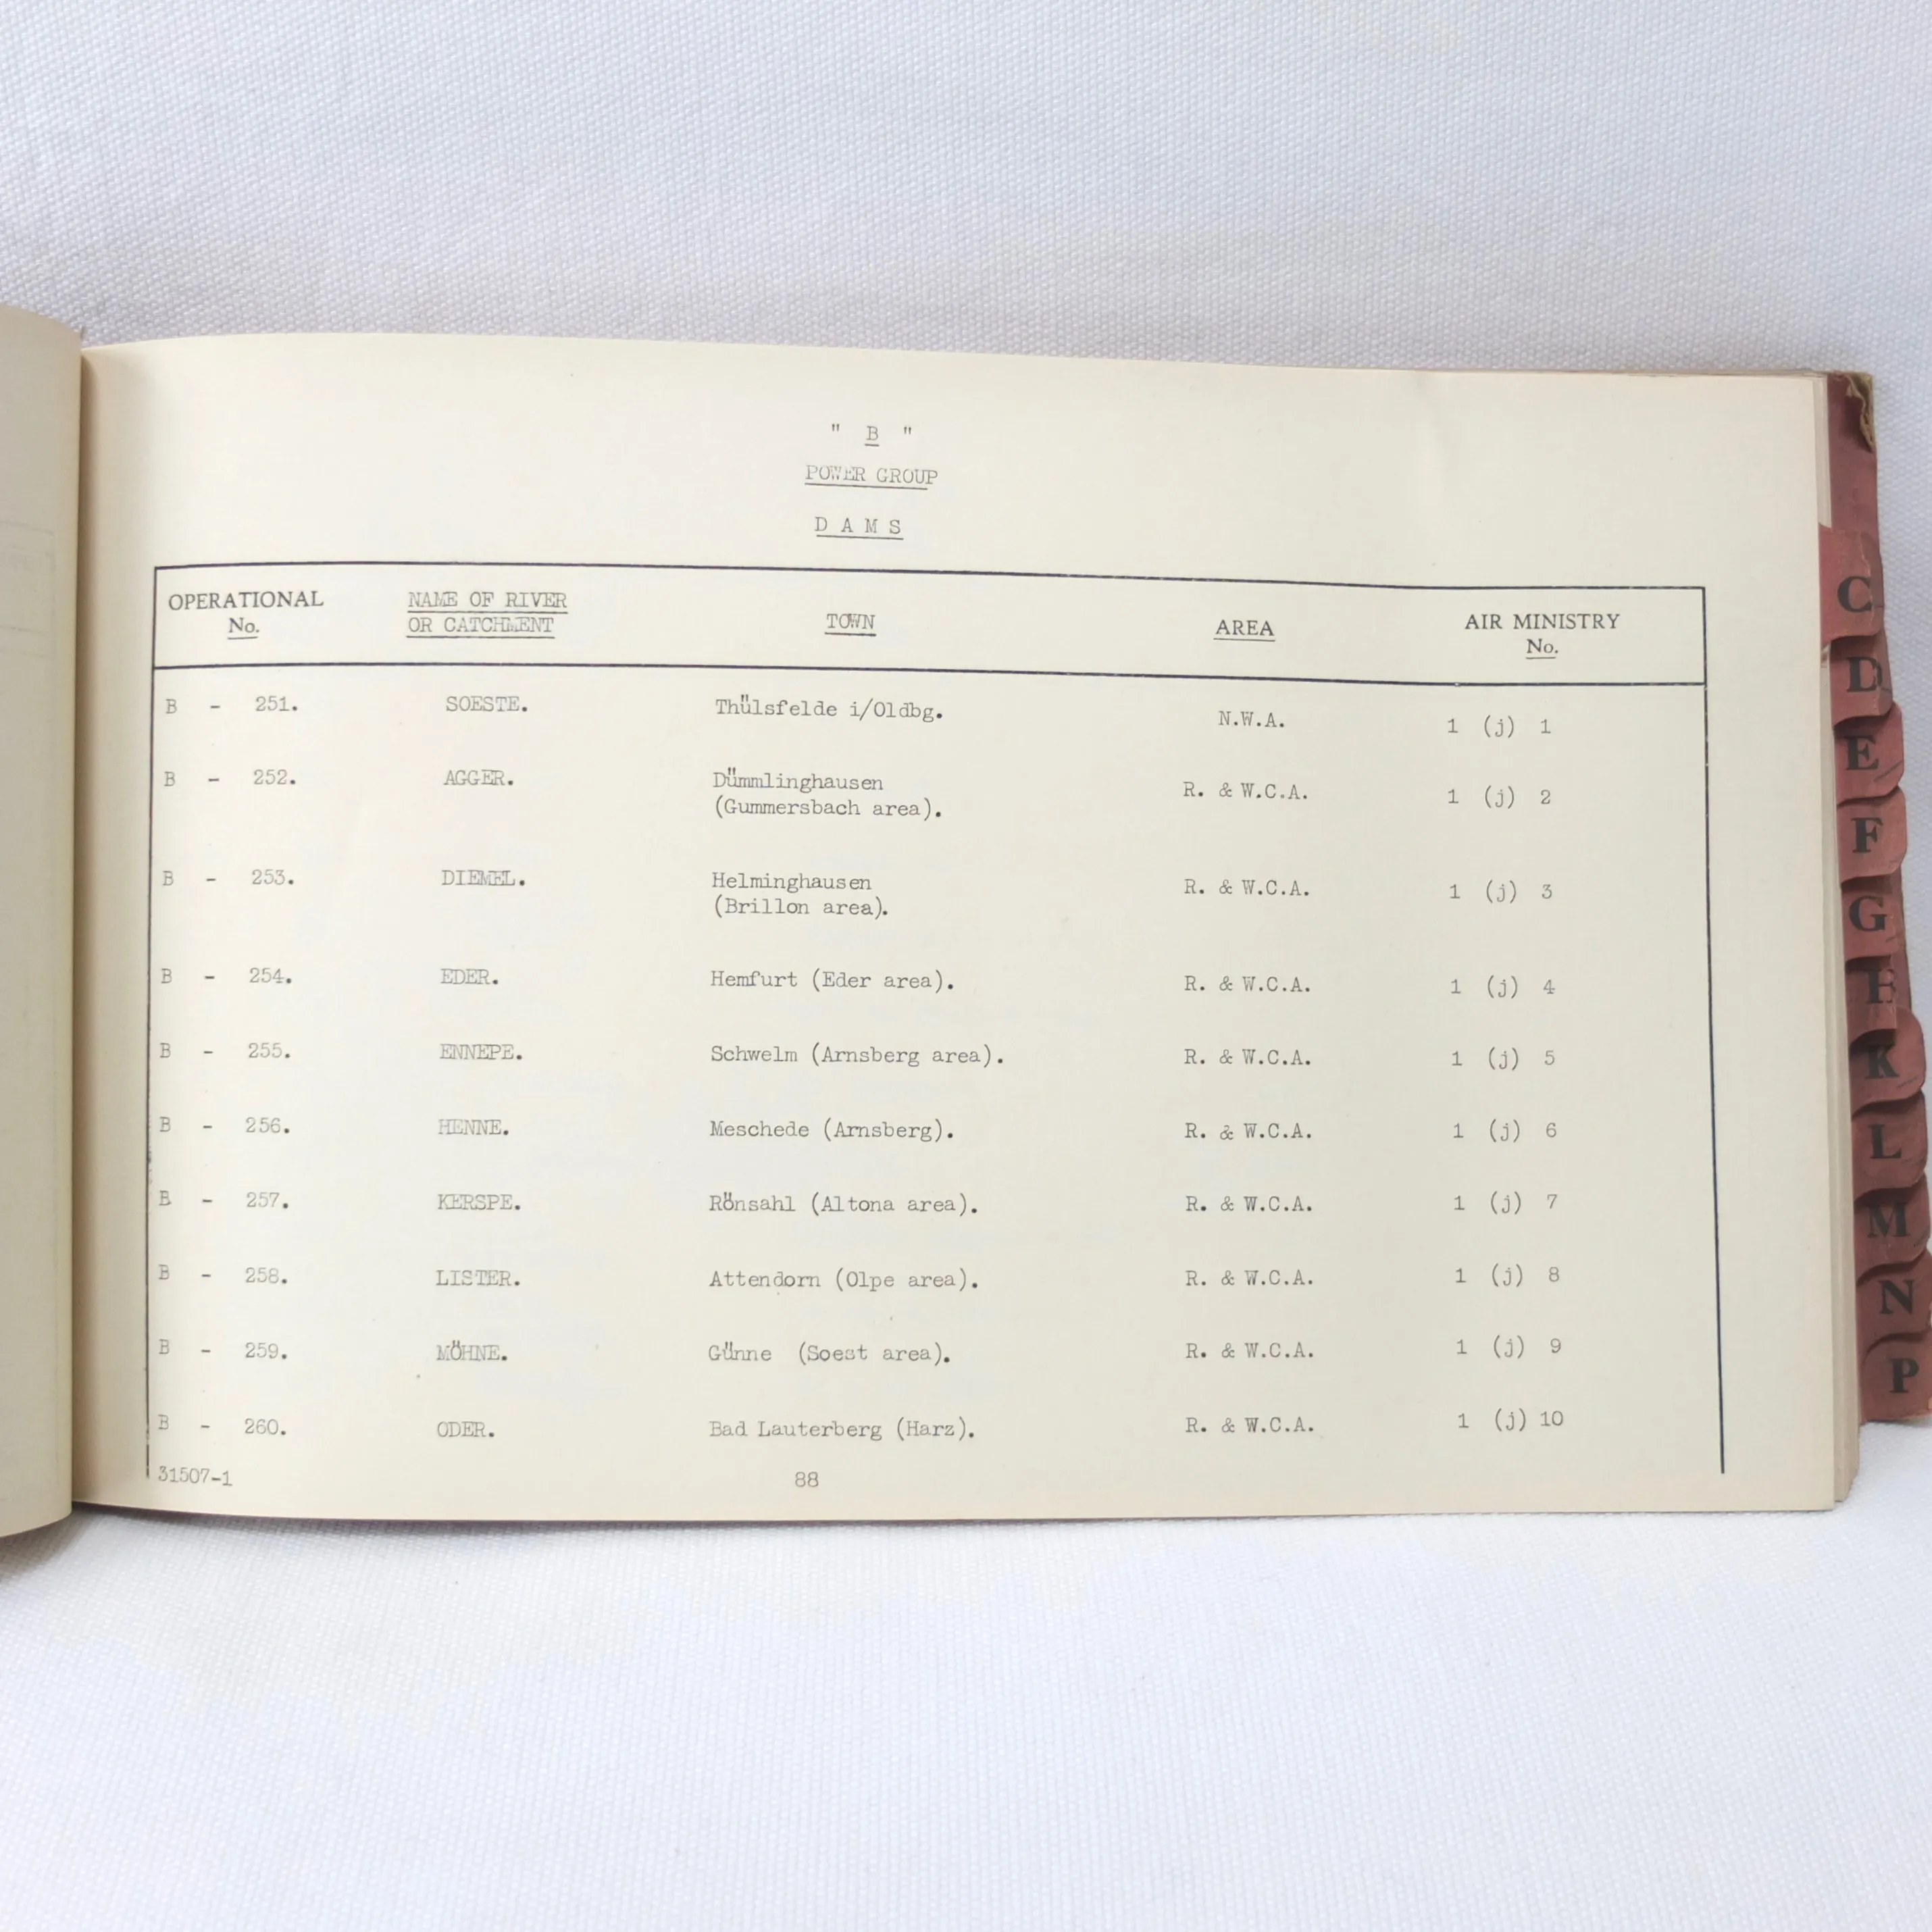 " B "
POWER GROUP
D A M S
OPERATIONAL No. NAME OF RIVER OR CATCHMENT TOWN AREA AIR MINISTRY No.
B - 251. SOESTE. Thülsfelde i/Oldbg. N.W.A. 1 (j) 1
B - 252. AGGER. Dümmlinghausen R. & W.C.A. 1 (j) 2
(Gummersbach area).
B - 253. DIEMEL. Helminghausen R. & W.C.A. 1 (j) 3
(Brillon area).
B - 254. EDER. Hemfurt (Eder area). R. & W.C.A. 1 (j) 4
B - 255. ENNEPE. Schwelm (Arnsberg area). R. & W.C.A. 1 (j) 5
B - 256. HENNE. Meschede (Arnsberg). R. & W.C.A. 1 (j) 6
B - 257. KERSPE. Rönsahl (Altona area). R. & W.C.A. 1 (j) 7
B - 258. LISTER. Attendorn (Olpe area). R. & W.C.A. 1 (j) 8
B - 259. MÖHNE. Günne (Soest area). R. & W.C.A. 1 (j) 9
B - 260. ODER. Bad Lauterberg (Harz). R. & W.C.A. 1 (j) 10
31507-1 88
C
D
E
F
G
H
K
L
M
N
P